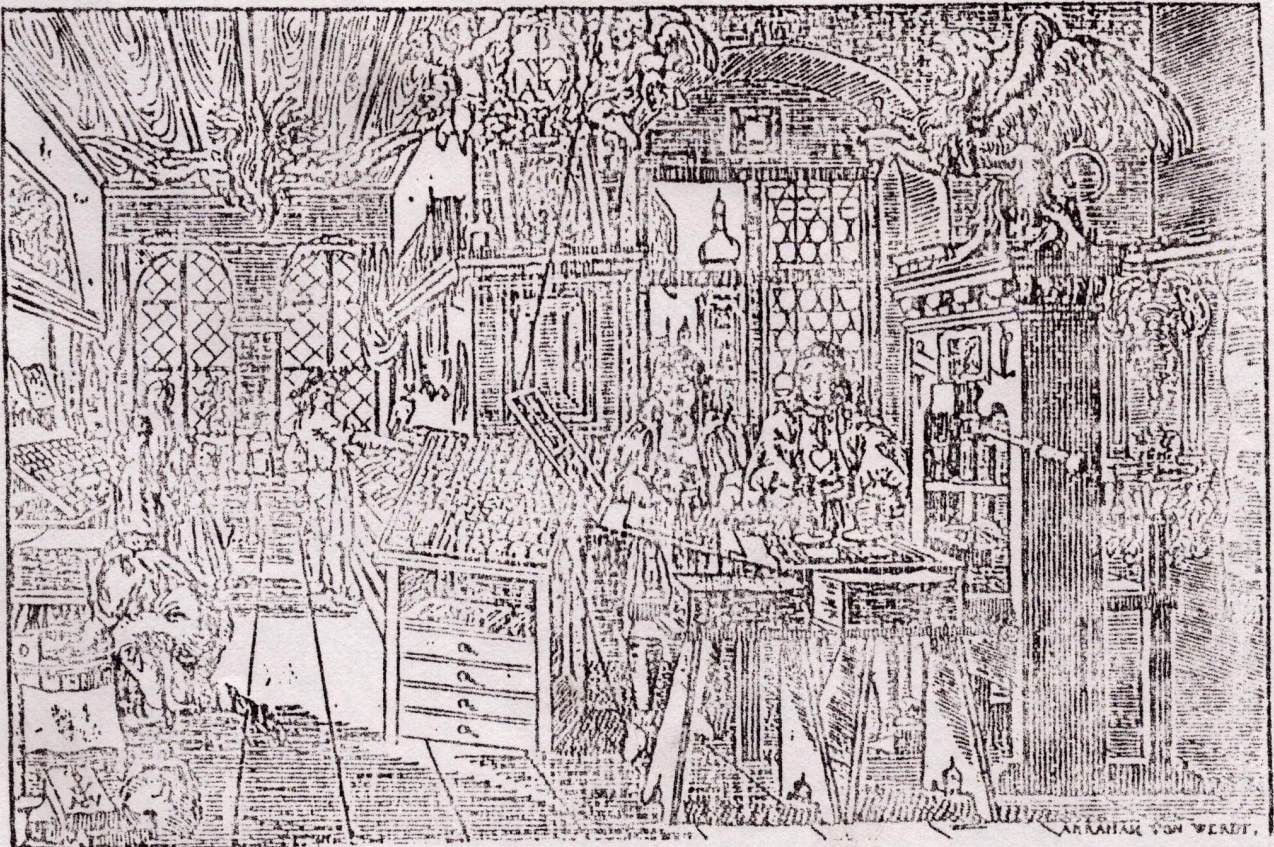 ABRAHAM VON WERDT.